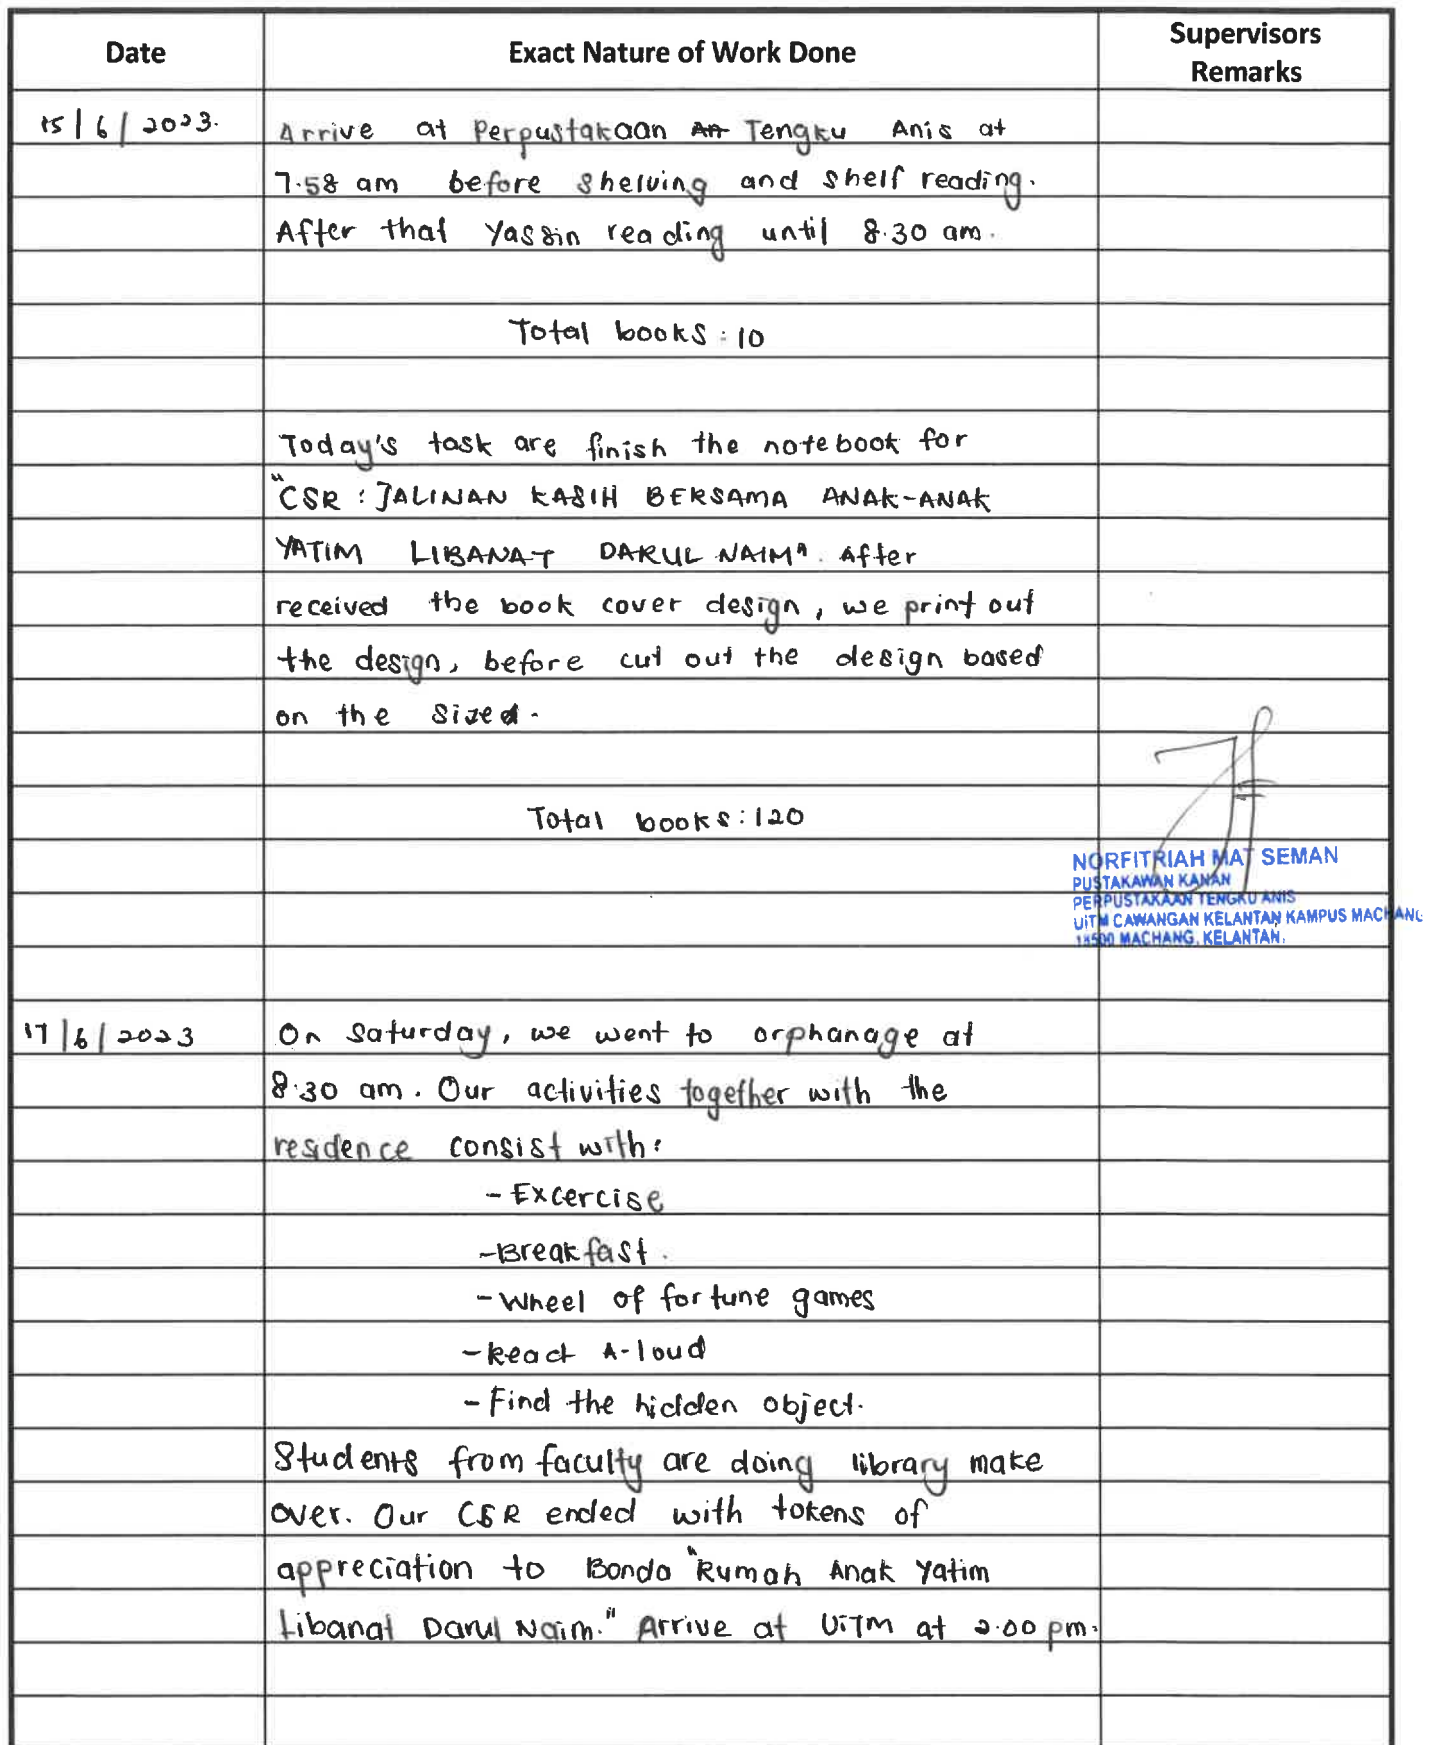 Date
Exact Nature of Work Done
Supervisors
Remarks
15/6/2023.
Arrive at Perpustakaan An Tengku Anis at
7.58 am before shelving and shelf reading.
After that Yassin reading until 8.30 am.
Total books : 10
Today's task are finish the notebook for
"CSR : JALINAN KASIH BERSAMA ANAK-ANAK
YATIM LIBANAT DARUL NAIM". After
received the book cover design, we print out
the design, before cut out the design based
on the sized.
Total books : 120
NORFITRIAH MAT SEMAN
PUSTAKAWAN KANAN
PERPUSTAKAAN TENGKU ANIS
UiTM CAWANGAN KELANTAN KAMPUS MACHANG
18500 MACHANG, KELANTAN.
17/6/2023
On Saturday, we went to orphanage at
8.30 am. Our activities together with the
residence consist with:
- Excercise
- Breakfast.
- Wheel of fortune games
- Read A-loud
- Find the hidden object.
Students from faculty are doing library make
over. Our CSR ended with tokens of
appreciation to Bonda "Rumah Anak Yatim
Libanat Darul Naim." Arrive at UiTM at 2.00 pm.